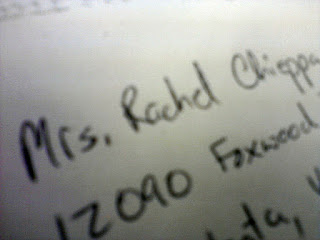 Mrs. Rachel Chieppa
12090 Foxwood